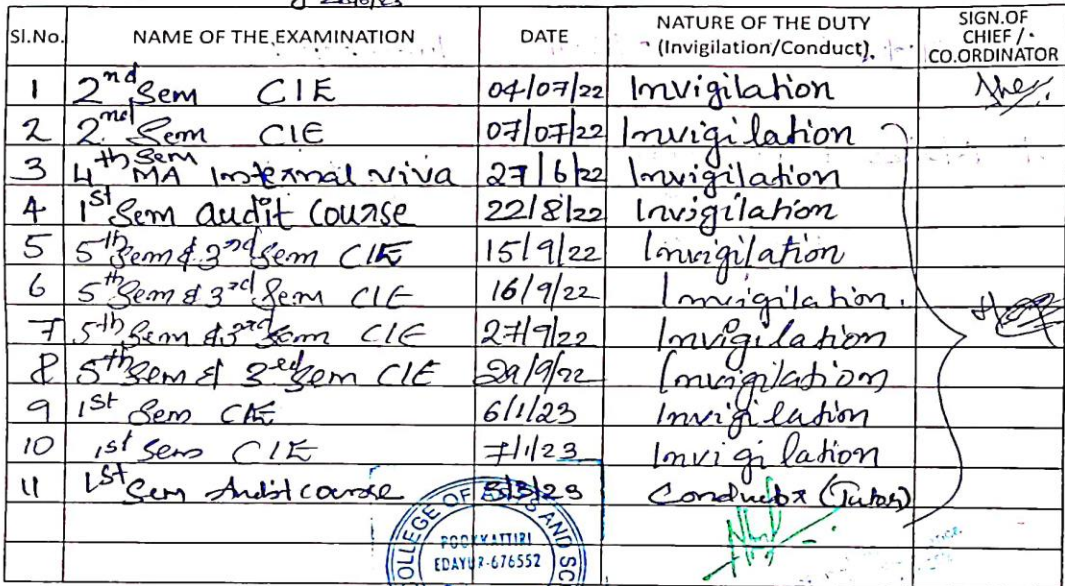 Sl.No. NAME OF THE EXAMINATION DATE NATURE OF THE DUTY (Invigilation/Conduct). SIGN.OF CHIEF / CO.ORDINATOR
1 2nd Sem CIE 04/07/22 Invigilation
2 2nd Sem CIE 07/07/22 Invigilation
3 4th Sem MA Internal viva 27/6/22 Invigilation
4 1st Sem audit Course 22/8/22 Invigilation
5 5th Sem & 3rd Sem CIE 15/9/22 Invigilation
6 5th Sem & 3rd Sem CIE 16/9/22 Invigilation.
7 5th Sem & 3rd Sem CIE 27/9/22 Invigilation
8 5th Sem & 3rd Sem CIE 29/9/22 Invigilation
9 1st Sem CIE 6/1/23 Invigilation
10 1st Sem CIE 7/1/23 Invigilation
11 1st Sem Audit course 3/23 (Tutor)
COLLEGE OF ARTS AND SC
POOKKATTIRI
EDAYUR-676552